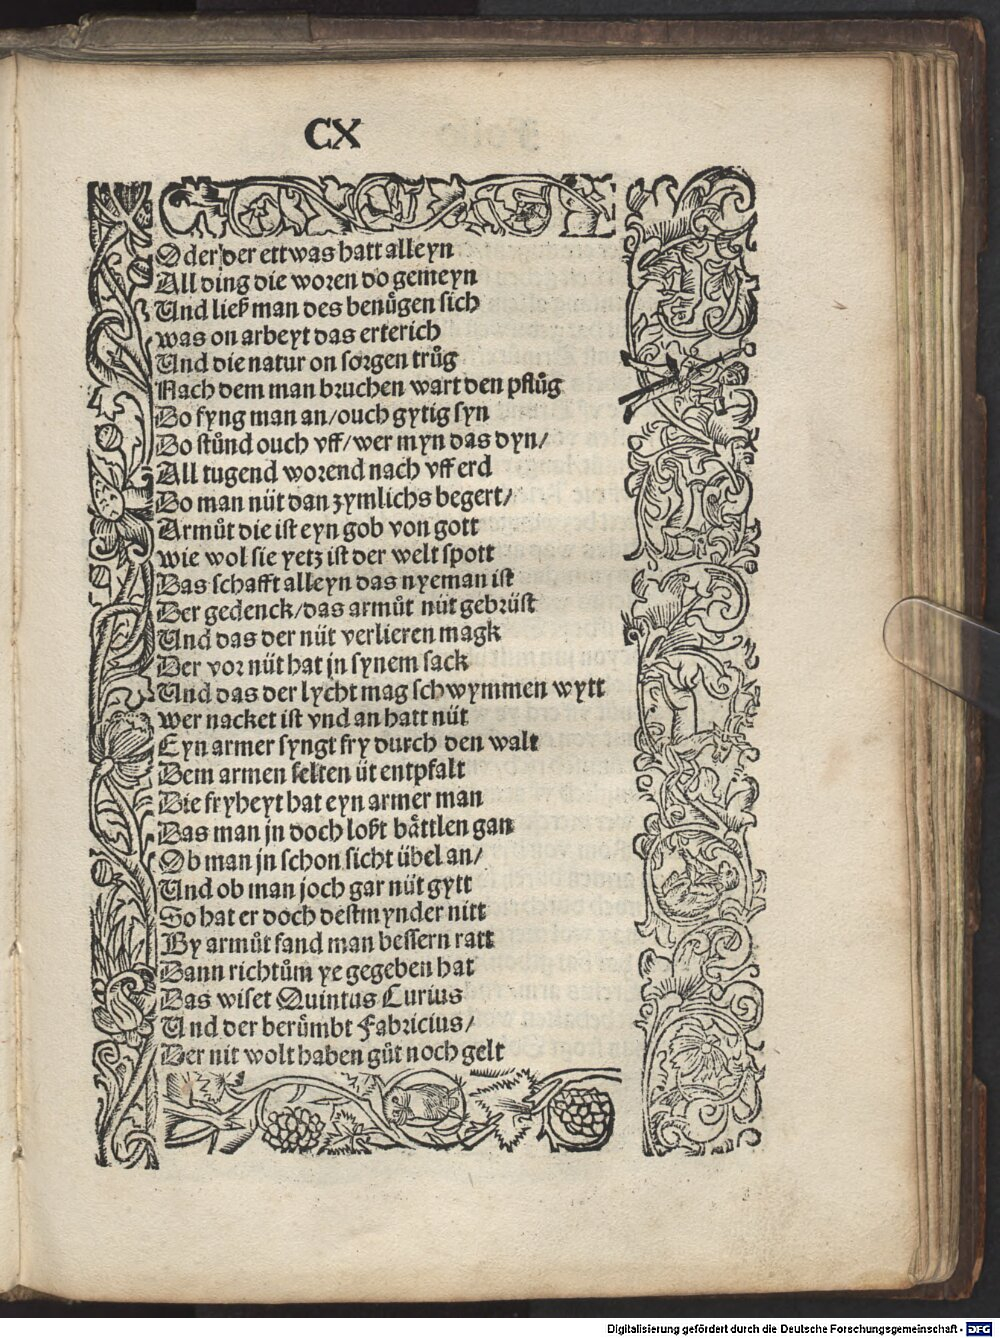 CX
Oder der ettwas hatt alleyn
All ding die woren do gemeyn
Und ließ man des benuͤgen sich
was on arbeyt das erterich
Und die natur on sorgen truͤg
Nach dem man bruchen wart den pfluͤg
Do fyng man an/ouch gytig syn
Do stuͤnd ouch vff/wer myn das dyn/
All tugend worend nach vff erd
Do man nüt dan zymlichs begert/
Armuͤt die ist eyn gob von gott
wie wol sie yetz ist der welt spott
Das schafft alleyn das nyeman ist
Der gedenck/das armuͤt nüt gebrüst
Und das der nüt verlieren magk
Der vor nüt hat jn synem sack
Und das der lycht mag schwymmen wytt
wer nacket ist vnd an hatt nüt
Eyn armer syngt fry durch den walt
Dem armen selten üt entpfalt
Die fryheyt hat eyn armer man
Das man jn doch loßt bättlen gan
Ob man jn schon sicht übel an/
Und ob man joch gar nüt gytt
So hat er doch destmynder nitt
By armuͤt fand man bessern ratt
Dann richtuͤm ye gegeben hat
Das wiset Quintus Curius
Und der beruͤmbt Fabricius/
Der nit wolt haben guͤt noch gelt
Digitalisierung gefördert durch die Deutsche Forschungsgemeinschaft - DFG